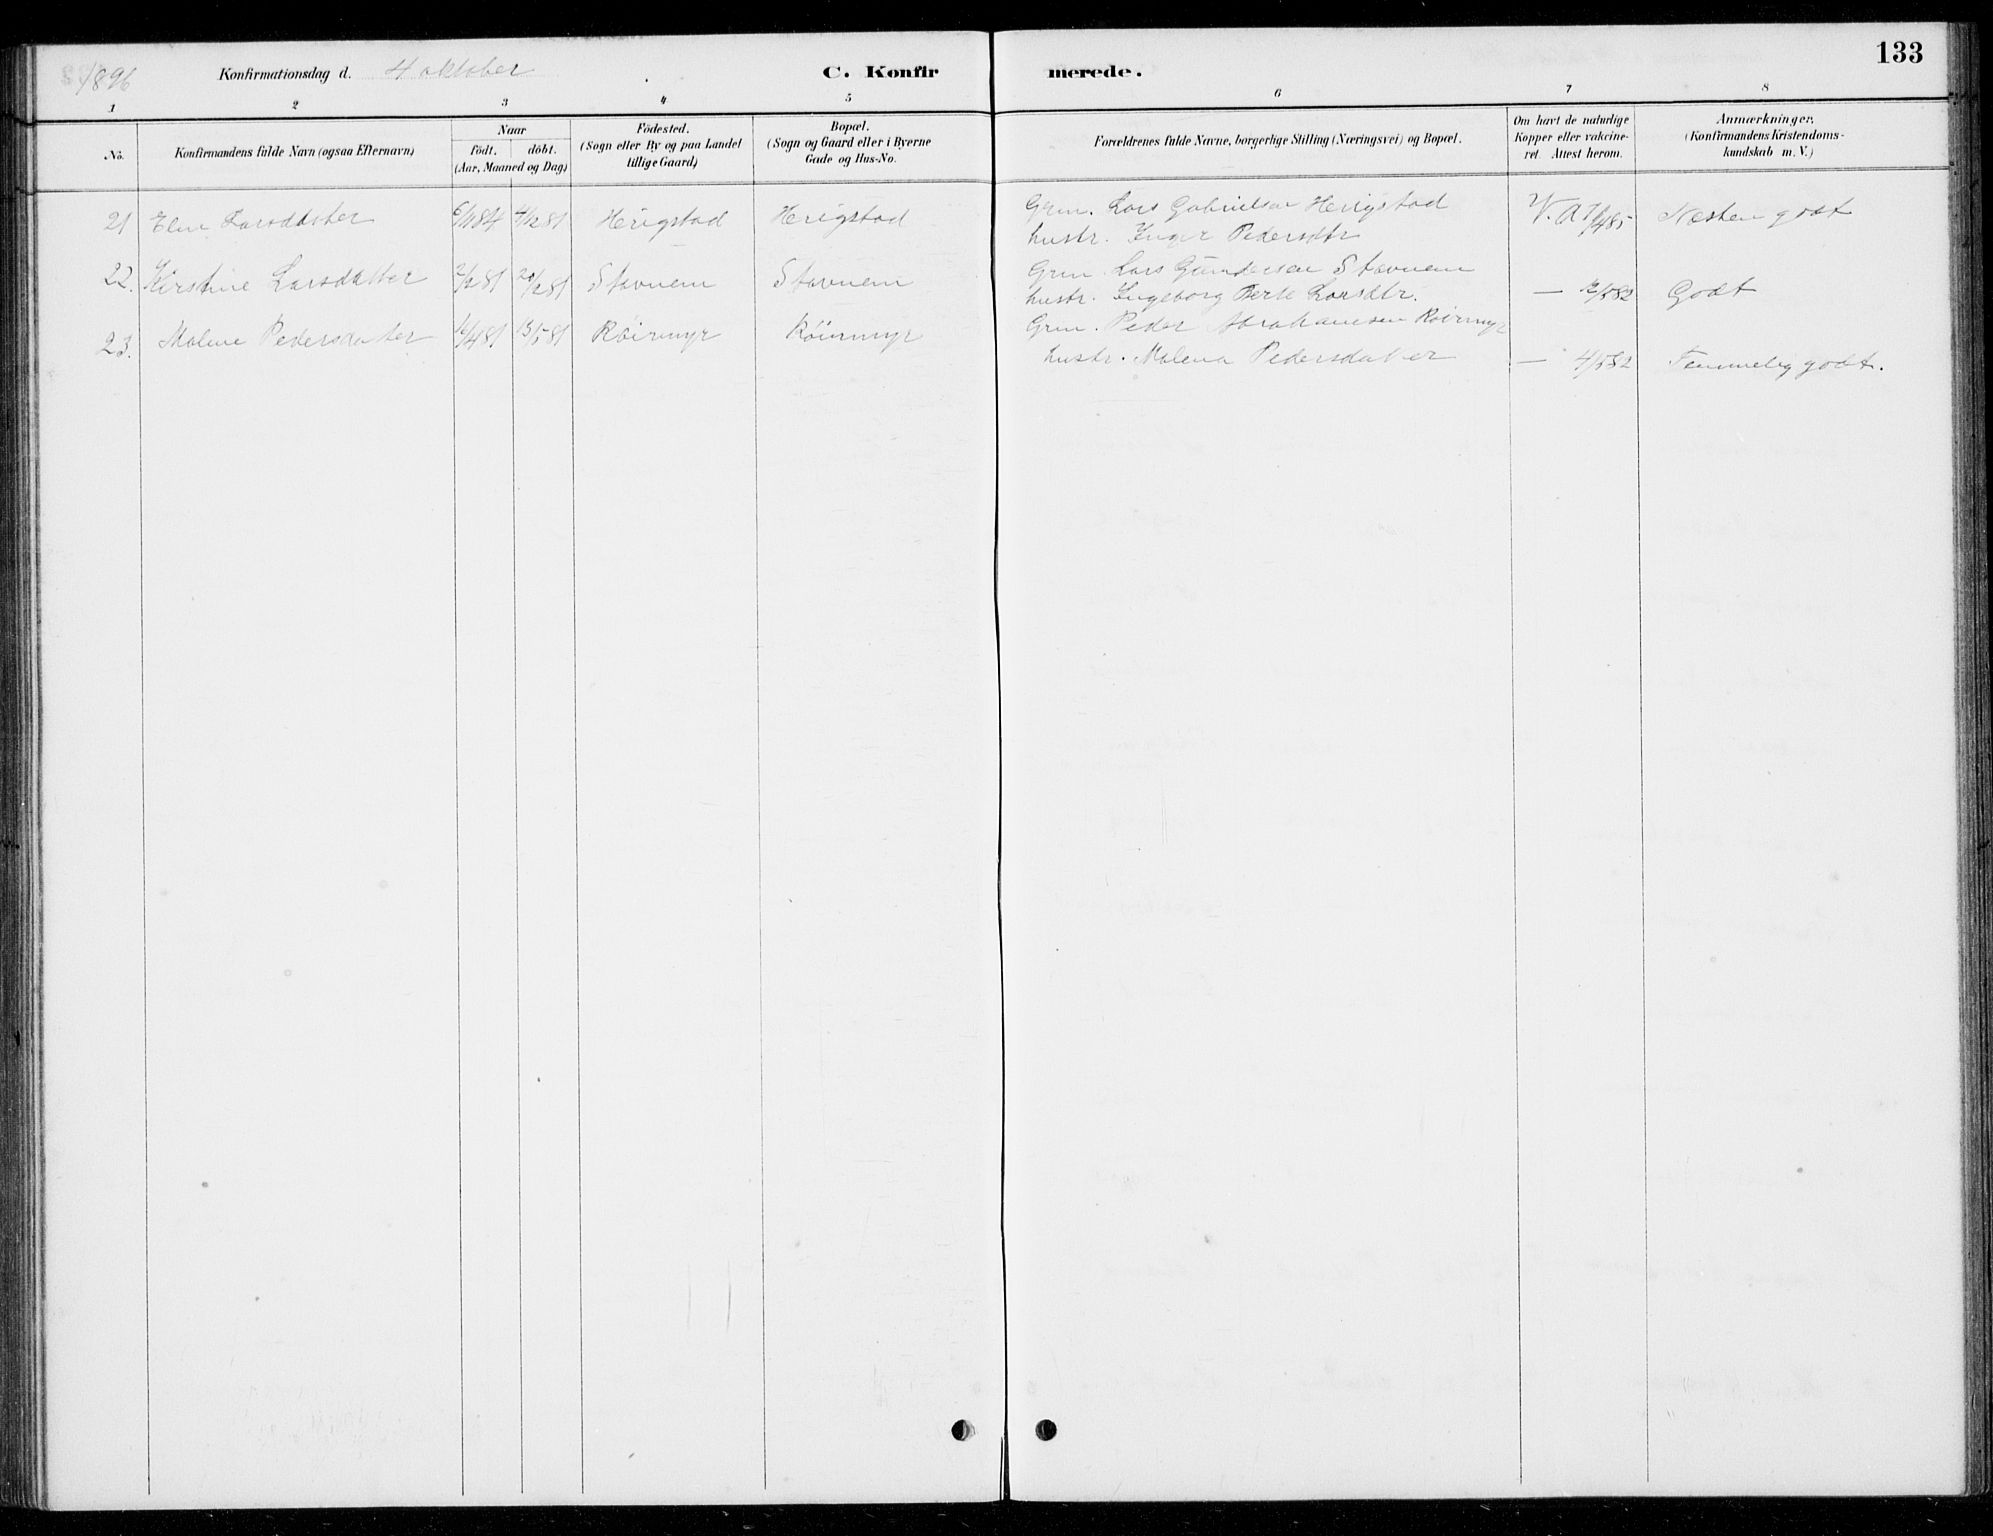 133
1896 Konfirmationsdag d. 4 oktober C. Konfirmerede.
1 2 3 4 5 6 7 8
No.
Konfirmandens fulde Navn (ogsaa Efternavn)
Naar
Födt. döbt.
(Aar, Maaned og Dag)
Födested.
(Sogn eller By og paa Landet
tillige Gaard)
Bopæl.
(Sogn og Gaard eller i Byerne
Gade og Hus-No.
Forældrenes fulde Navne, borgerlige Stilling (Næringsvei) og Bopæl.
Om havt de naturlige
Kopper eller vakcine-
ret. Attest herom.
Anmærkninger.
(Konfirmandens Kristendoms-
kundskab m. V.)
21 Larsdatter Herigstad Herigstad Grm. Lars Gabrielsen Herigstad V. A Næsten godt
hustr. Inger Pedersdtr
22. Kirstine Larsdatter 2/2 81 20/2 81 Stavnem Stavnem Grm. Lars Gundersen Stavnem
hustr. Ingeborg Berte Larsdtr. — 12/5 82 Godt
23. Malene Pedersdatter 16/4 81 15/5 81 Röirmyr Röirmyr Grm. Peder Abrahamsen Röirmyr
hustr. Malena Pedersdatter — 4/5 82 Temmelig godt.